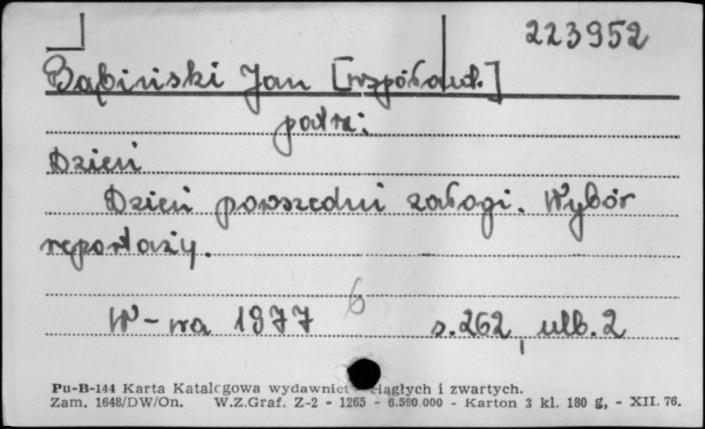 223952
Bąbiński Jan [współaut.]
patrz:
Dzień
Dzień powszedni załogi. Wybór
reportaży.
6
W-wa 1977 s. 262, ulb. 2
Pu-B-144 Karta Katalogowa wydawnict ciągłych i zwartych.
Zam. 1648/DW/On. W.Z.Graf. Z-2 - 1265 - 6.590.000 - Karton 3 kl. 180 g, - XII. 76.